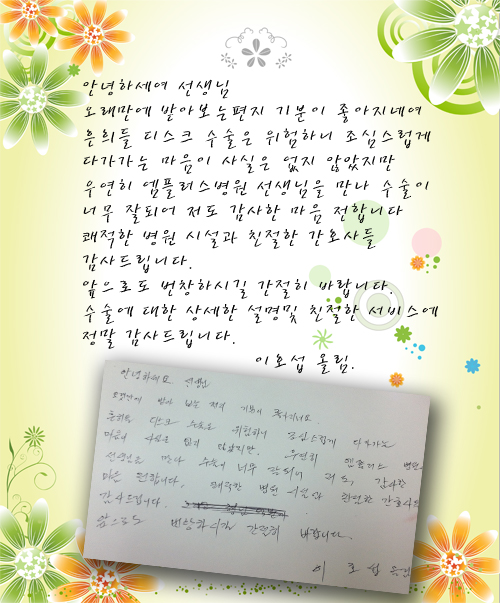 안녕하세여 선생님
오래만에 받아보는편지 기분이 좋아지네여
흔희들 디스크 수술은 위험하니 조심스럽게
다가가는 마음이 사실은 없지 않았지만
우연히 엠플러스병원 선생님을 만나 수술이
너무 잘되어 저도 감사한 마음 전합니다
쾌적한 병원 시설과 친절한 간호사들
감사드립니다.
앞으로도 번창하시길 간절히 바랍니다.
수술에 대한 상세한 설명및 친절한 서비스에
정말 감사드립니다.
이호섭 올림.
안녕하세요 선생님
오랫만에 받아 보는 편지 기분이
디스크 수술은 위험하니 조심스럽게 다가가는
마음이 사실은 없지 않았지만. 우연히 병원
선생님을 만나 수술이 너무 잘되어 저도, 감사한
마음 전합니다. 쾌적한 병원 시설과 간호사들
감사드립니다.
앞으로도 번창하시길 간절히 바랍니다.
이 호 섭